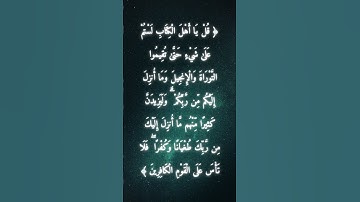 ﴿ قُلْ يَا أَهْلَ الْكِتَابِ لَسْتُمْ
عَلَىٰ شَيْءٍ حَتَّىٰ تُقِيمُوا
التَّوْرَاةَ وَالْإِنجِيلَ وَمَا أُنزِلَ
إِلَيْكُم مِّن رَّبِّكُمْ ۗ وَلَيَزِيدَنَّ
كَثِيرًا مِّنْهُم مَّا أُنزِلَ إِلَيْكَ
مِن رَّبِّكَ طُغْيَانًا وَكُفْرًا ۖ فَلَا
تَأْسَ عَلَى الْقَوْمِ الْكَافِرِينَ ﴾